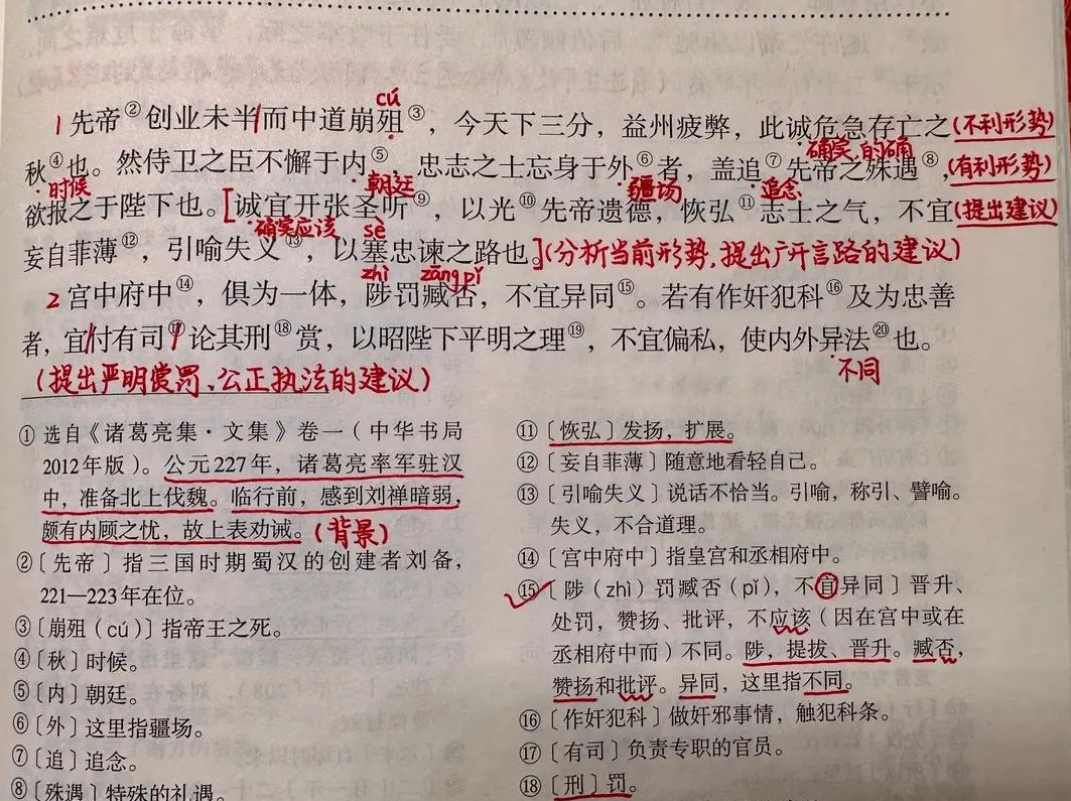 cú
1 先帝②创业未半/而中道崩殂③，今天下三分，益州疲弊，此诚危急存亡之(不利形势)
确实,的确
秋④也。然侍卫之臣不懈于内⑤，忠志之士忘身于外⑥者，盖追⑦先帝之殊遇⑧，(有利形势)
时候 朝廷 疆场 追念
欲报之于陛下也。[诚宜开张圣听⑨，以光⑩先帝遗德，恢弘⑪志士之气，不宜(提出建议)
确实应该 sè
妄自菲薄⑫，引喻失义⑬，以塞忠谏之路也。](分析当前形势,提出广开言路的建议)
zhì zāng pǐ
2 宫中府中⑭，俱为一体，陟罚臧否，不宜异同⑮。若有作奸犯科⑯及为忠善
者，宜/付有司⑰/论其刑⑱赏，以昭陛下平明之理⑲，不宜偏私，使内外异法⑳也。
(提出严明赏罚、公正执法的建议) 不同
① 选自《诸葛亮集·文集》卷一（中华书局
2012年版）。公元227年，诸葛亮率军驻汉
中，准备北上伐魏。临行前，感到刘禅暗弱，
颇有内顾之忧，故上表劝诫。(背景)
②〔先帝〕指三国时期蜀汉的创建者刘备，
221—223年在位。
③〔崩殂（cú）〕指帝王之死。
④〔秋〕时候。
⑤〔内〕朝廷。
⑥〔外〕这里指疆场。
⑦〔追〕追念。
⑧〔殊遇〕特殊的礼遇。
⑪〔恢弘〕发扬，扩展。
⑫〔妄自菲薄〕随意地看轻自己。
⑬〔引喻失义〕说话不恰当。引喻，称引、譬喻。
失义，不合道理。
⑭〔宫中府中〕指皇宫和丞相府中。
⑮〔陟（zhì）罚臧否（pǐ），不宜异同〕晋升、
处罚，赞扬、批评，不应该（因在宫中或在
丞相府中而）不同。陟，提拔、晋升。臧否，
赞扬和批评。异同，这里指不同。
⑯〔作奸犯科〕做奸邪事情，触犯科条。
⑰〔有司〕负责专职的官员。
⑱〔刑〕罚。